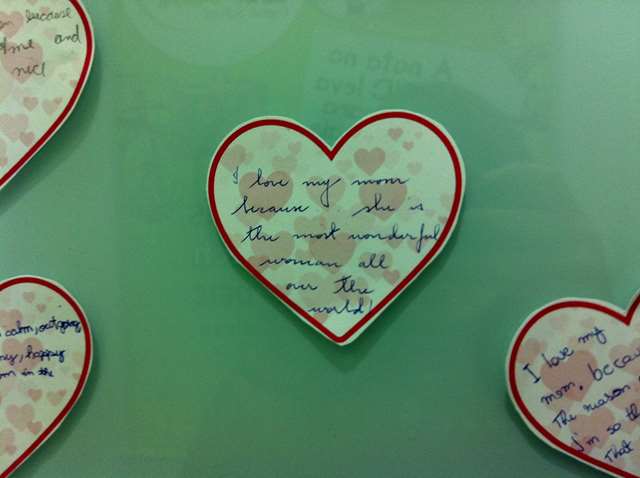 because
me and
nice
I love my mom
because she is
the most wonderful
woman all
over the
world!
calm, outgoing
, happy
in the
I love my
mom, because
The reason
I'm so th
That